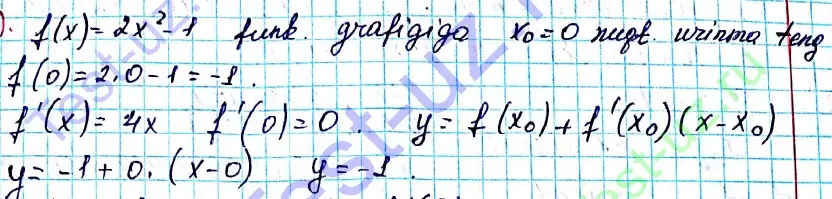 ). f(x)= 2x²-1 funk. grafigiga x₀=0 nuqt. urinma teng
f(0)=2.0-1=-1.
f'(x)=4x f'(0)=0. y=f(x₀)+f'(x₀)(x-x₀)
y=-1+0.(x-0) y=-1.
test-uz.ru